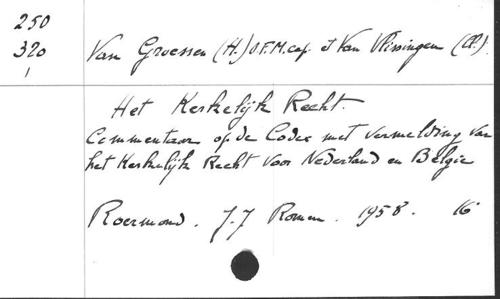 250
320
Van Groessen (H.) O.F.M.cap. et Van Vlissingen (Cl.).
Het Kerkelijk Recht.
Commentaar op de Codex met vermelding van
het Kerkelijk Recht voor Nederland en België
Roermond. J.J Romen. 1958. 16°